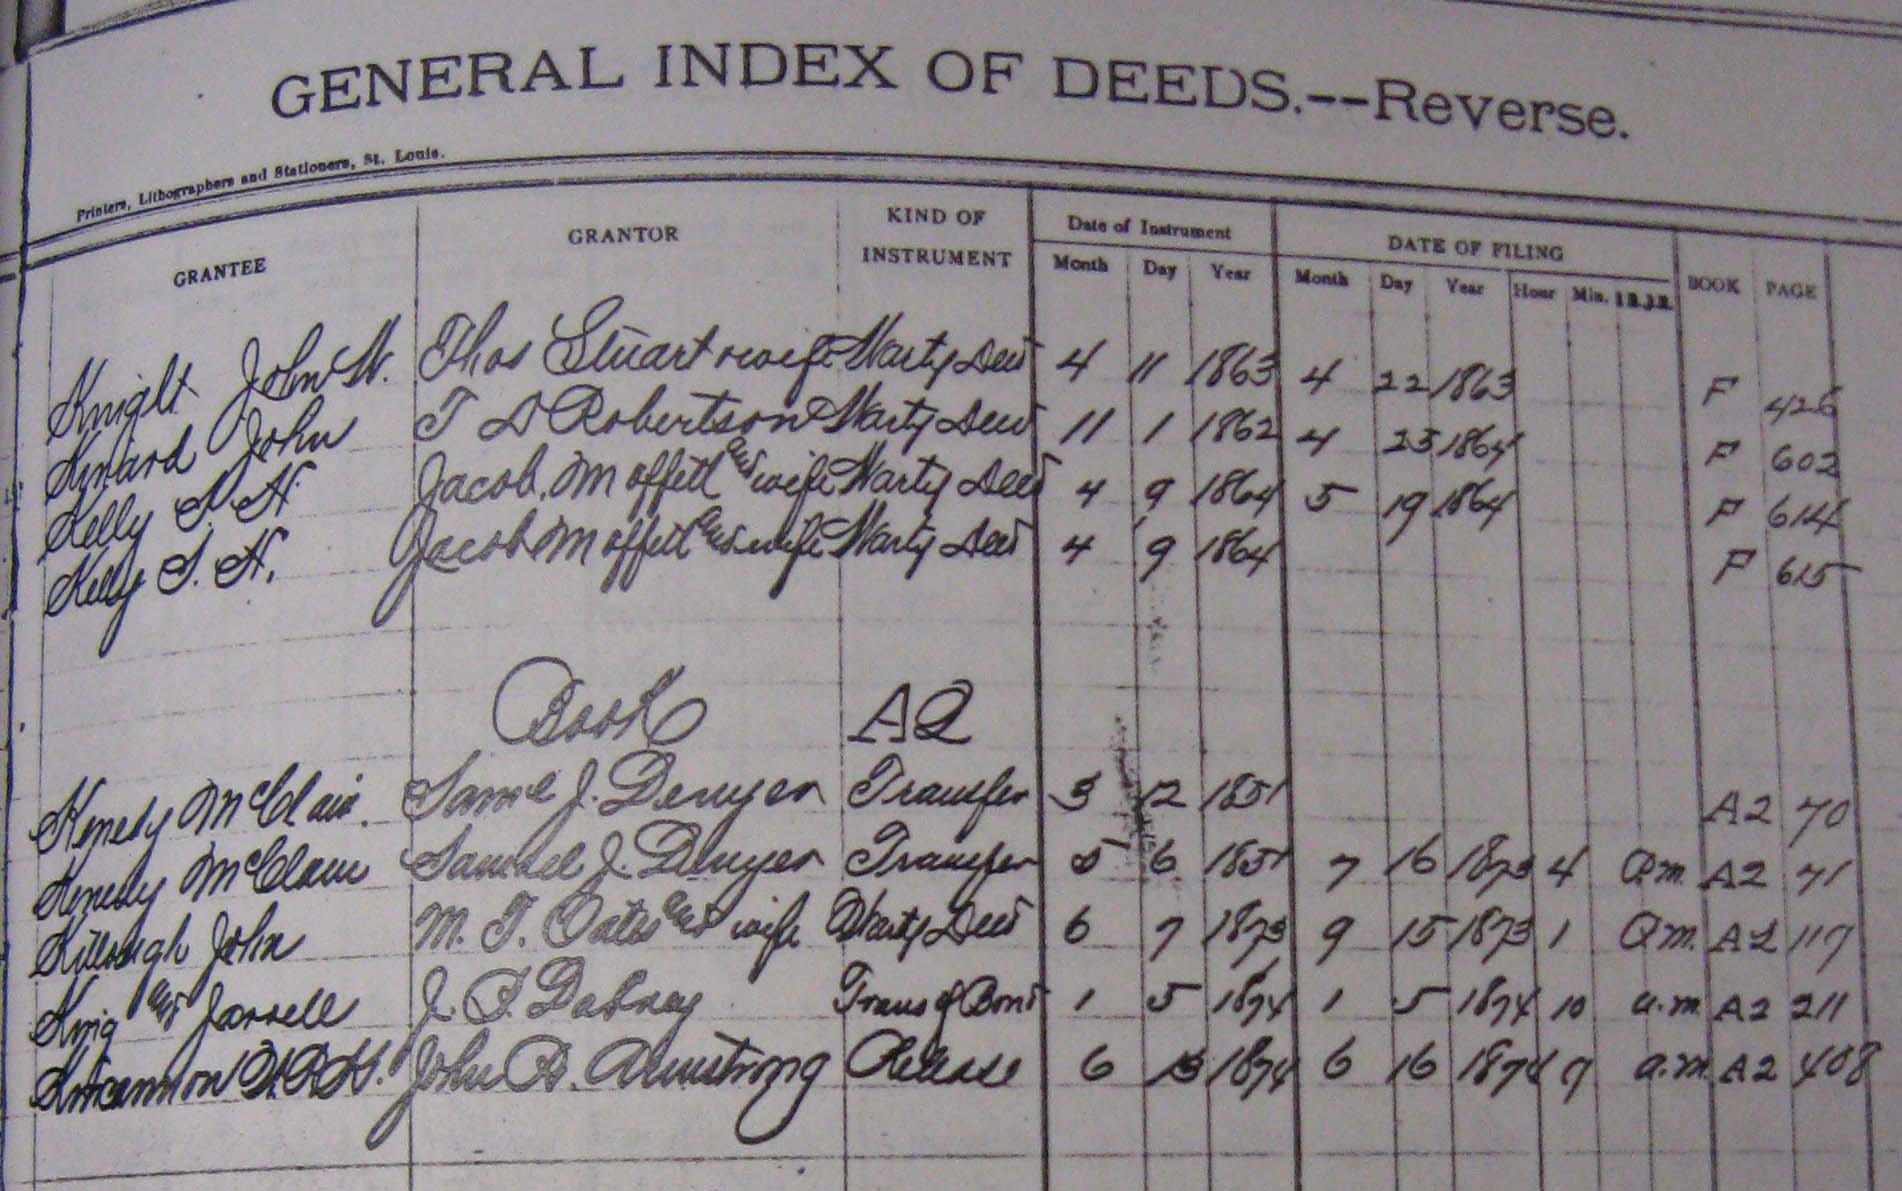 GENERAL INDEX OF DEEDS.--Reverse.
Printers, Lithographers and Stationers, St. Louis.
GRANTEE GRANTOR KIND OF INSTRUMENT Date of Instrument DATE OF FILING BOOK PAGE
Month Day Year Month Day Year Hour Min.
Knight John W. Thos Stuart & wife Warty Deed 4 11 1863 4 22 1863 F 426
Kinard John T D Robertson Warty Deed 11 1 1862 4 23 1864 F 602
Kelly S. H. Jacob Moffett and wife Warty Deed 4 9 1864 5 19 1864 F 614
Kelly S. H. Jacob Moffett and wife Warty Deed 4 9 1864 F 615
Book A2
Kenedy McClain. Saml J. Denyer Transfer 3 12 1851 A2 70
Kenedy McClain Samuel J. Denyer Transfer 5 6 1851 7 16 1873 4 P.m. A2 71
Killough John M. T. Oates and wife Warty Deed 6 7 1873 9 15 1873 1 P.m. A2 117
King and Jarrell J. P. Dabney Trans of Bond 1 5 1874 1 5 1874 10 a.m A2 211
John B. Armstrong Release 6 13 1874 6 16 1874 9 a.m. A2 408